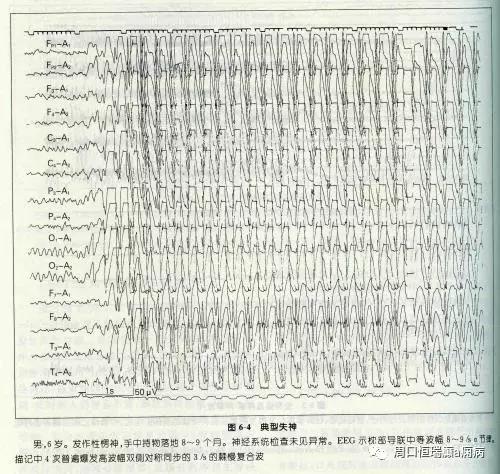 FP1-A1
FP2-A2
F3-A1
F4-A2
C3-A1
C4-A2
P3-A1
P4-A2
O1-A1
O2-A2
F7-A1
F8-A2
T3-A1
T4-A2
1s 50μV
图 6-4 典型失神
男,6岁。发作性愣神,手中持物落地8~9个月。神经系统检查未见异常。EEG示枕部导联中等波幅8~9/s α节律,
描记中4次普遍爆发高波幅双侧对称同步的3/s的棘慢复合波
周口恒瑞癫a痫病